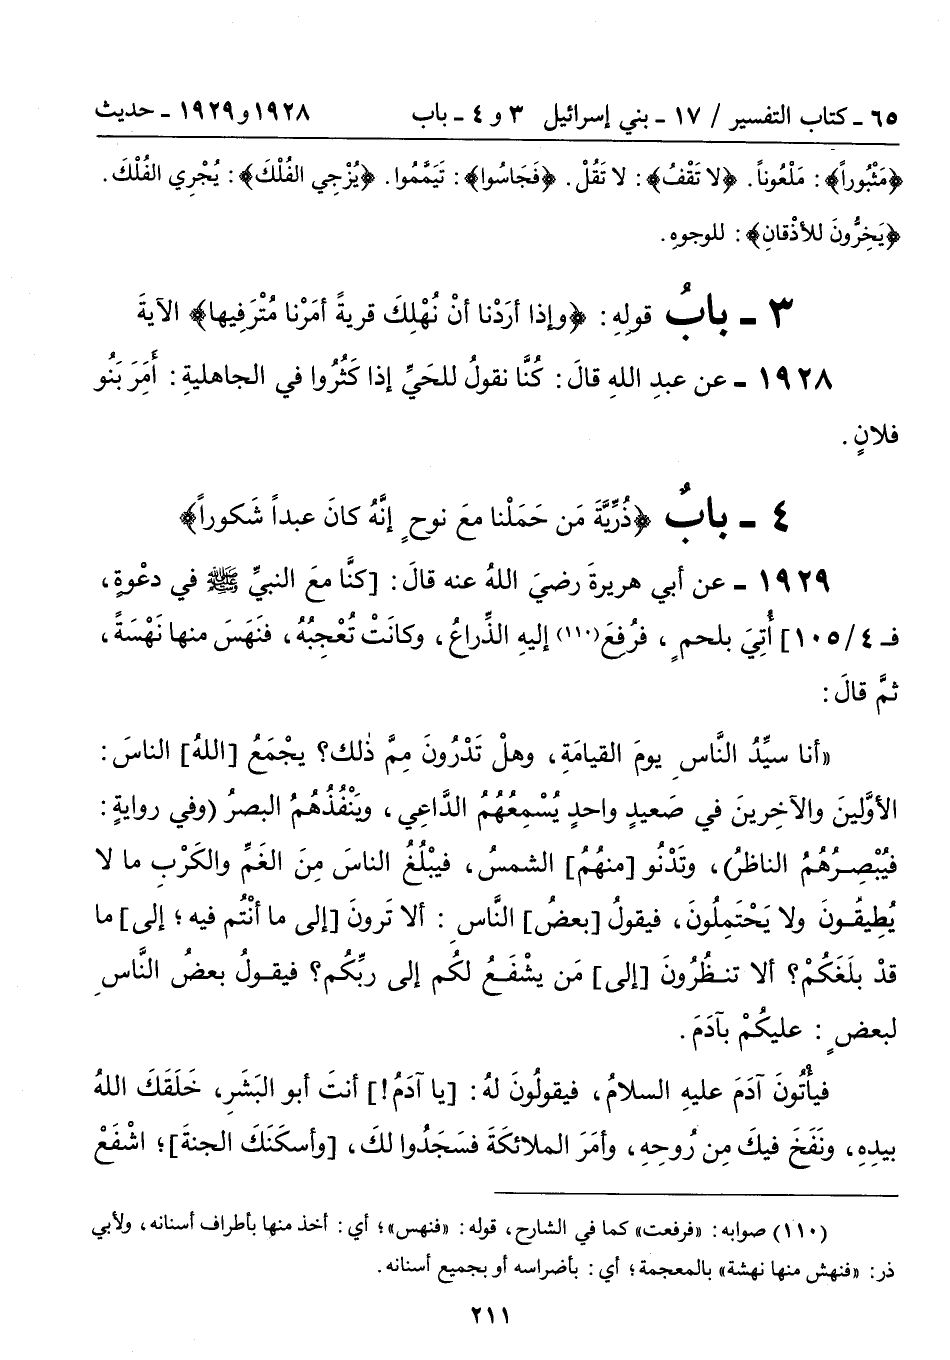 ٦٥ ـ كتاب التفسير / ١٧ ـ بني إسرائيل ٣ و ٤ ـ باب ١٩٢٨ و ١٩٢٩ ـ حديث
﴿مَثْبُوراً﴾: مَلْعُوناً. ﴿لا تَقْفُ﴾: لا تَقُلْ. ﴿فَجَاسُوا﴾: تَيَمَّمُوا. ﴿يُزْجِي الفُلْكَ﴾: يُجْرِي الفُلْكَ.
﴿يَخِرُّونَ للأذْقانِ﴾: للوجوهِ.
٣ ـ بابُ قولِهِ: ﴿وإذا أرَدْنا أنْ نُهْلِكَ قريةً أمَرْنا مُتْرَفِيها﴾ الآيةَ
١٩٢٨ ـ عن عبدِ اللهِ قالَ: كُنَّا نقولُ للحَيِّ إذا كَثُرُوا في الجاهليةِ: أَمِرَ بَنُو
فلانٍ.
٤ ـ بابٌ ﴿ذُرِّيَّةَ مَن حَمَلْنا معَ نوحٍ إنَّهُ كانَ عبداً شَكوراً﴾
١٩٢٩ ـ عن أبي هريرةَ رضيَ اللهُ عنه قالَ: [كنَّا معَ النبيِّ ﷺ في دعْوةٍ،
فـ ٤/١٠٥] أُتِيَ بلحمٍ، فرُفِعَ(١١٠) إليهِ الذِّراعُ، وكانَتْ تُعْجِبُهُ، فنَهَسَ منها نَهْسَةً،
ثمَّ قالَ:
«أنا سيِّدُ النَّاسِ يومَ القيامَةِ، وهلْ تَدْرُونَ مِمَّ ذٰلك؟ يجْمَعُ [اللهُ] الناسَ:
الأوَّلينَ والآخِرينَ في صَعيدٍ واحدٍ يُسْمِعُهُمُ الدَّاعِي، ويَنْفُذُهُمُ البصرُ (وفي روايةٍ:
فيُبْصِرُهُمُ الناظرُ)، وتَدْنُو [منهُم] الشمسُ، فيبْلُغُ الناسَ مِنَ الغَمِّ والكَرْبِ ما لا
يُطِيقُونَ ولا يَحْتَمِلُونَ، فيقولُ [بعضُ] النَّاسِ: ألا تَرونَ [إلى ما أنْتُم فيه؛ إلى] ما
قدْ بلَغَكُمْ؟ ألا تنظُرُونَ [إلى] مَن يشْفَعُ لكُم إلى ربِّكُم؟ فيقولُ بعضُ النَّاسِ
لبعضٍ: عليكُمْ بآدَمَ.
فيأْتُونَ آدَمَ عليهِ السلامُ، فيقولُونَ لهُ: [يا آدَمُ!] أنتَ أبو البَشَرِ، خَلَقَكَ اللهُ
بيدِهِ، ونَفَخَ فيكَ مِن رُوحِهِ، وأمَرَ الملائكَةَ فسَجَدُوا لكَ، [وأسكَنَكَ الجنةَ]؛ اشْفَعْ
(١١٠) صوابه: «فرفعت» كما في الشارح، قوله: «فنهس»؛ أي: أخذ منها بأطراف أسنانه، ولأبي
ذر: «فنهش منها نهشة» بالمعجمة؛ أي: بأضراسه أو بجميع أسنانه.
٢١١